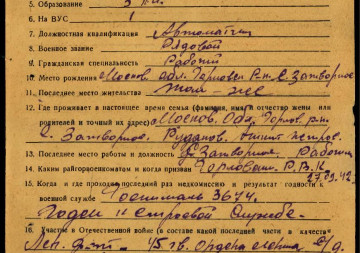 5. Образование 3 кл.
6. На ВУС 1
7. Должностная квалификация Автоматчик
8. Военное звание Рядовой
9. Гражданская специальность Рабочий
10. Место рождения Москов. Обл. р-н. с. Затворное
11. Последнее место жительства
12. Где проживает в настоящее время семья (фамилия, имя и отчество жены или
родителей и точный их адрес) Москов. Обл. р-н.
с. Затворное. Руданов.
13. Последнее место работы и должность Затворное. Рабочий
14. Каким райгорвоенкоматом и когда призван Р.В.К. 42
15. Когда и где проходил последний раз медкомиссию и результат годности к
военной службе Госпиталь 3674.
Годен к строевой службе.
16. Участие в Отечественной войне (в составе какой последней части в качестве
Лен. фронт. 45 гв. Ордена Ленина